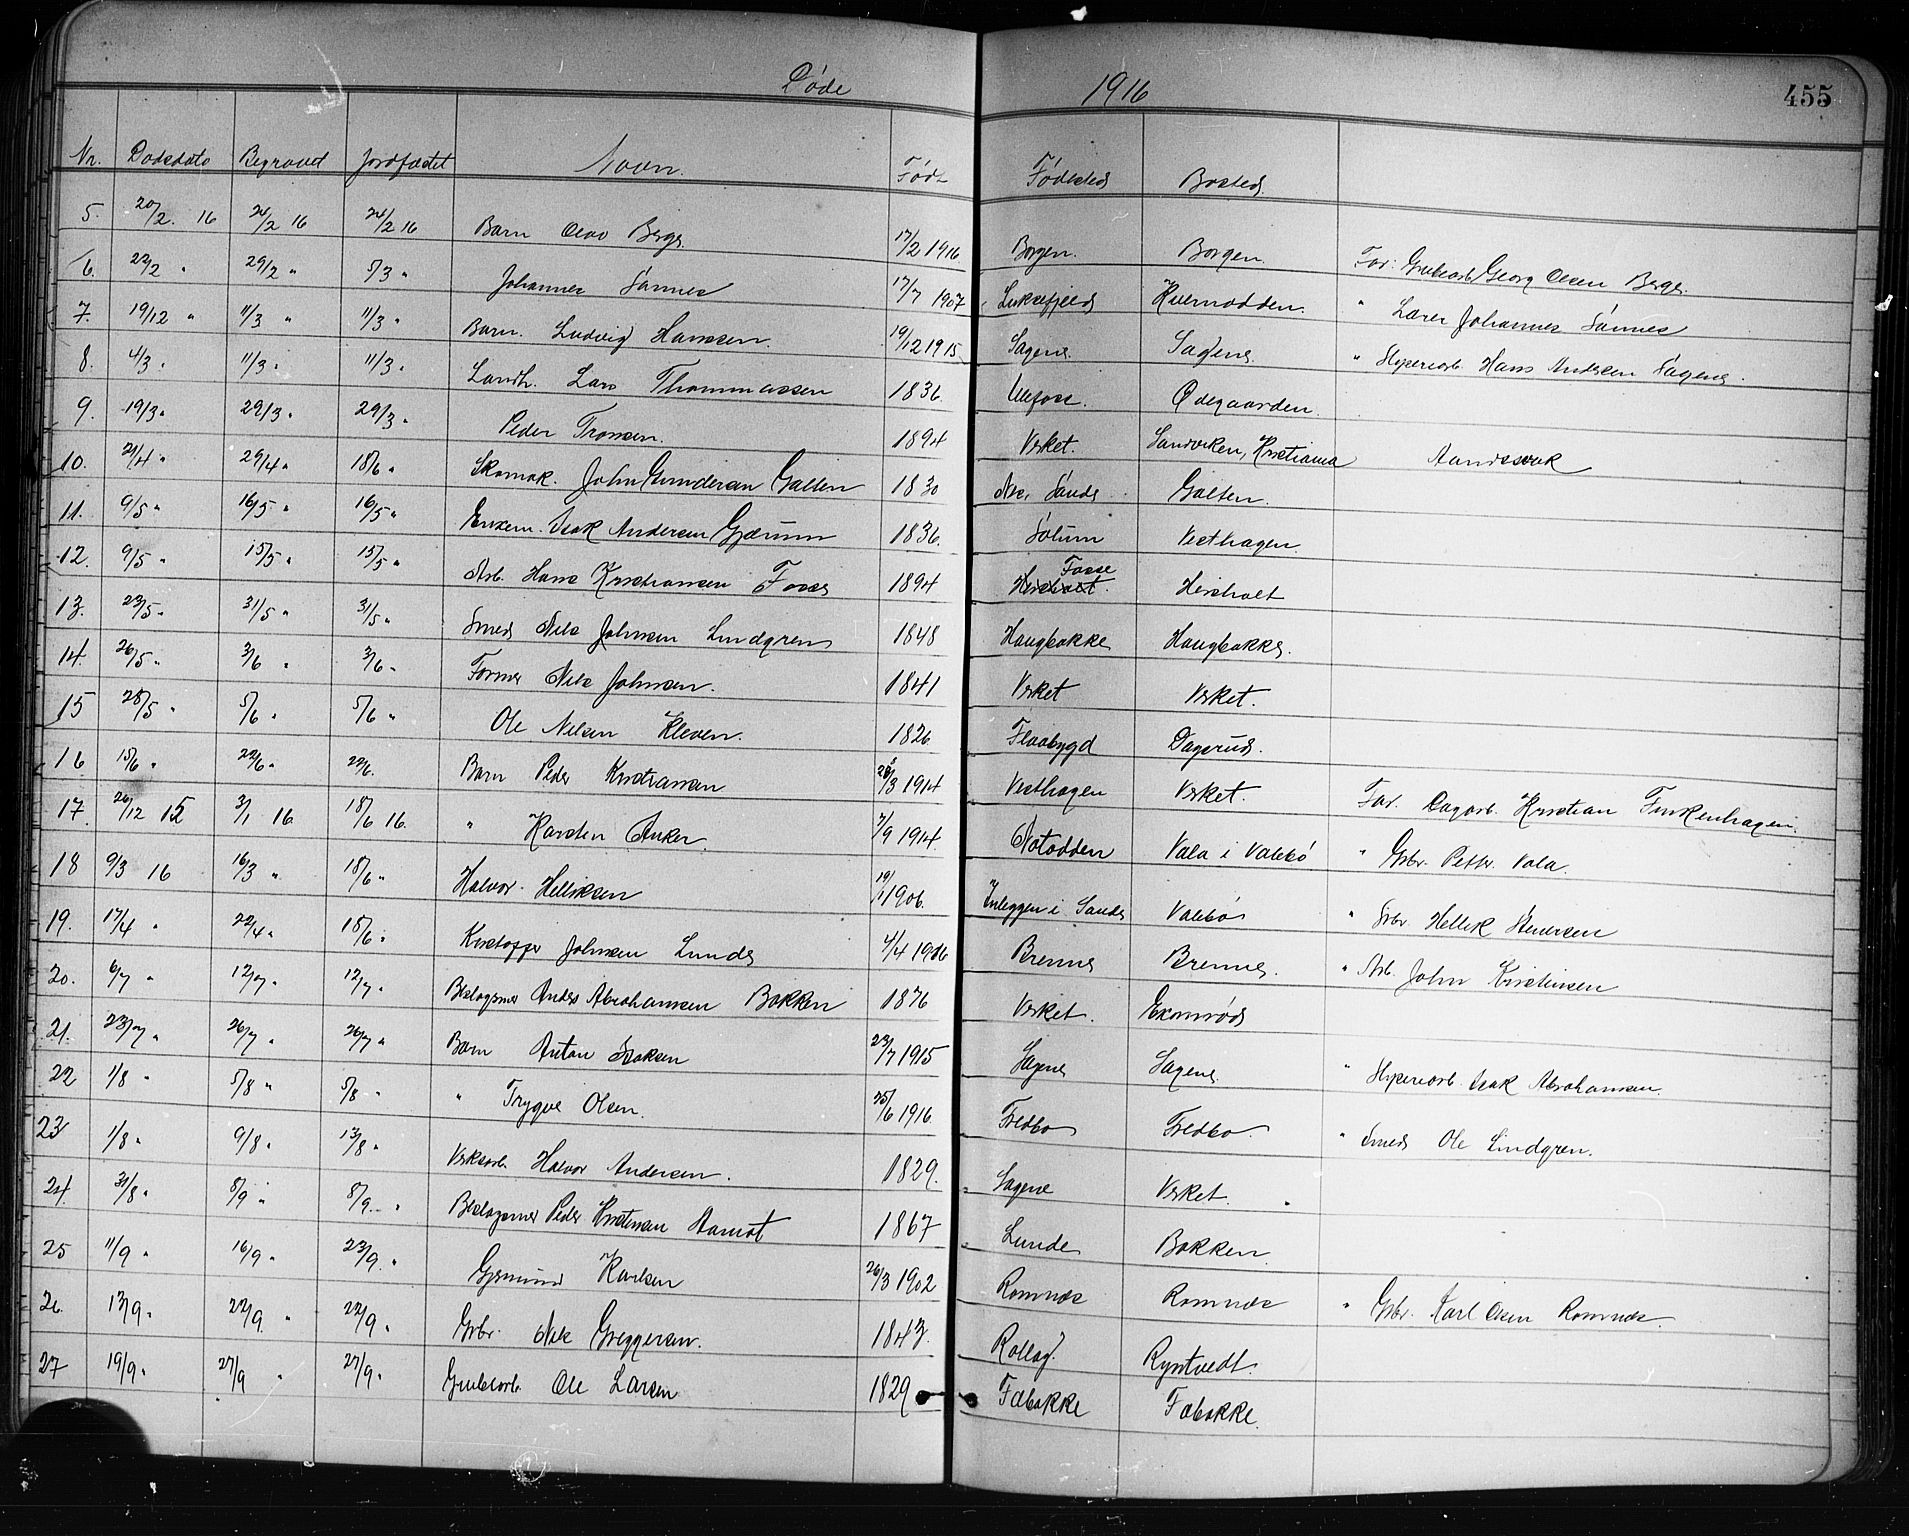 Døde 1916 455
Nr. Dødsdato Begravet Jordfæstet Navn. Født Fødested Bosted.
5. 20/2. 16 24/2 16 24/2 16 Barn Olav Berge. 17/2 1916 Borgen. Borgen. Far: Grubearb. Georg Olsen Berge.
6. 22/2 " 29/2 " 5/3 " Johannes Sannes 17/7 1907 Luksefjeld Kvernodden. " Lærer Johannes Sannes
7. 19/12 " 11/3 " 11/3 " Barn. Ludvig Hanssen. 19/12 1915 Sagene. Sagene. " Hans Andersen Sagene.
8. 4/3 " 11/3 " 11/3 " Landh. Lars Thommassen 1836 Ulefoss. Ødegaarden.
9. 19/3 " 29/3 " 29/3 " Peder Tronsen. 1894 Verket. Sandviken, Kristiania Aandssvak
10. 21/4 " 29/4 " 18/6 " Skomak. John Gundersen Galten 1830 Ned. Sande Galten.
11. 9/5 " 16/5 " 16/5 " Enkem. Isak Andersen Gjærum 1836. Solum Vesthagen.
12. 9/5 " 15/5 " 15/5 " Arb. Hans Kristiansen Fosse 1894 Hersholt. Fosse Hersholt
13. 23/5 " 31/5 " 31/5 " Smed Nils Johnsen Lindgren 1848 Haugbakke Haugbakke.
14. 26/5 " 3/6 " 3/6 " Former Nils Johnsen. 1841 Verket Verket.
15 28/5 " 5/6 " 5/6 " Ole Nilsen Kleven. 1826 Flaabygd Dagsrud.
16 15/6 " 22/6 " 22/6. Barn Peder Kristiansen 26/3 1914 Vesthagen Verket. Far. Dagarb. Kristian Finkenhagen.
17. 26/12 15 3/1 16 18/6 16. " Karsten Anker. 7/9 1914 Notodden Vala i Valebø " Gbr. Petter Vala.
18 9/3 16 16/3 " 18/6 " Halvor Helliksen 19/1 1906. i Sande Valebø " Gbr. Hellik
19. 17/4 " 22/4 " 18/6 " Kristoffer Johnsen Lunde 4/4 1916 Brenne Brenne. " Arb. John Kristensen
20. 6/7 " 12/7 " 12/7 " Anders Abrahamsen Bakken 1876 Verket. Ekornrød
21. 23/7 " 26/7 " 26/7 " Barn Anton Isaksen 23/7 1915 Sagene Sagene. " Isak Abrahamsen.
22 1/8 " 5/8 " 5/8 " " Trygve Olsen. 25/6 1916 Fredbo Fredbo. " Smed Ole Lindgren.
23 1/8 " 9/8 " 13/8 " Verksarb. Halvor Andersen. 1829. Sagene Verket.
24. 31/8 " 8/9 " 8/9 " Peder Kristian Aamot 1867 Lunde Bakken
25 11/9 " 16/9 " 23/9. " Gjermund Karlsen 26/3 1902 Romnes Romnes " Gbr. Karl Olsen Romnes.
26. 13/9 " 22/9. " 22/9 " Gbr. Nils Greggersen. 1843. Rollag. Ryntvedt.
27 19/9 " 27/9 " 27/9 " Grubearb. Ole Larsen 1829 Fæbakke Fæbakke.